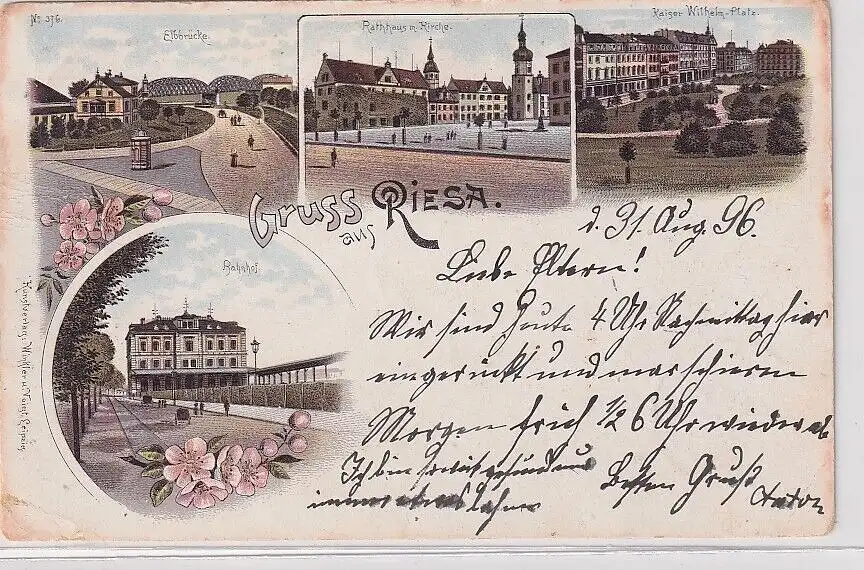 No 376.
Elbbrücke.
Rathhaus m. Kirche.
Kaiser Wilhelm-Platz.
Gruss
aus
RIESA.
Bahnhof.
Kunstverlag: Winkler u. Voigt, Leipzig.
d. 31 Aug. 96.
Liebe Eltern!
Wir sind heute 4 Uhr Nachmittag hier
eingerückt und marschieren
Morgen früh 1/2 6 Uhr wieder ab
Ich bin soweit gesund und
immer etwas
Besten Gruß
Anton